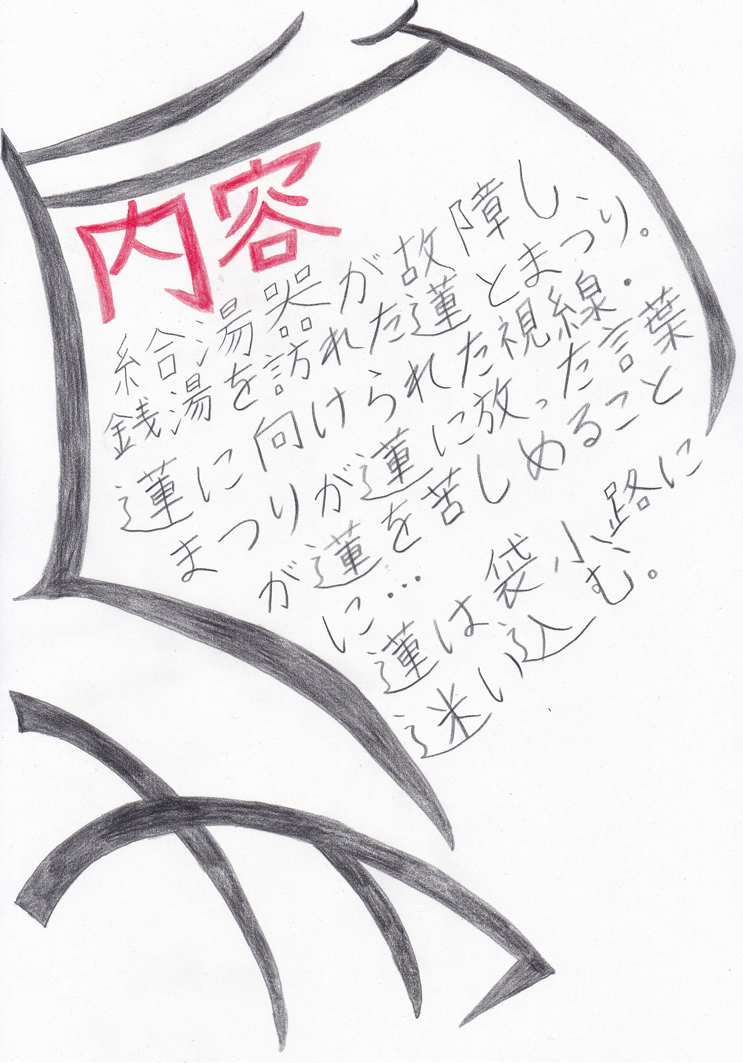 内容
給湯器が故障し、
銭湯を訪れた蓮とまつり。
蓮に向けられた視線・
まつりが蓮に放った言葉
が蓮を苦しめること
に…
蓮は袋小路に
迷い込む。